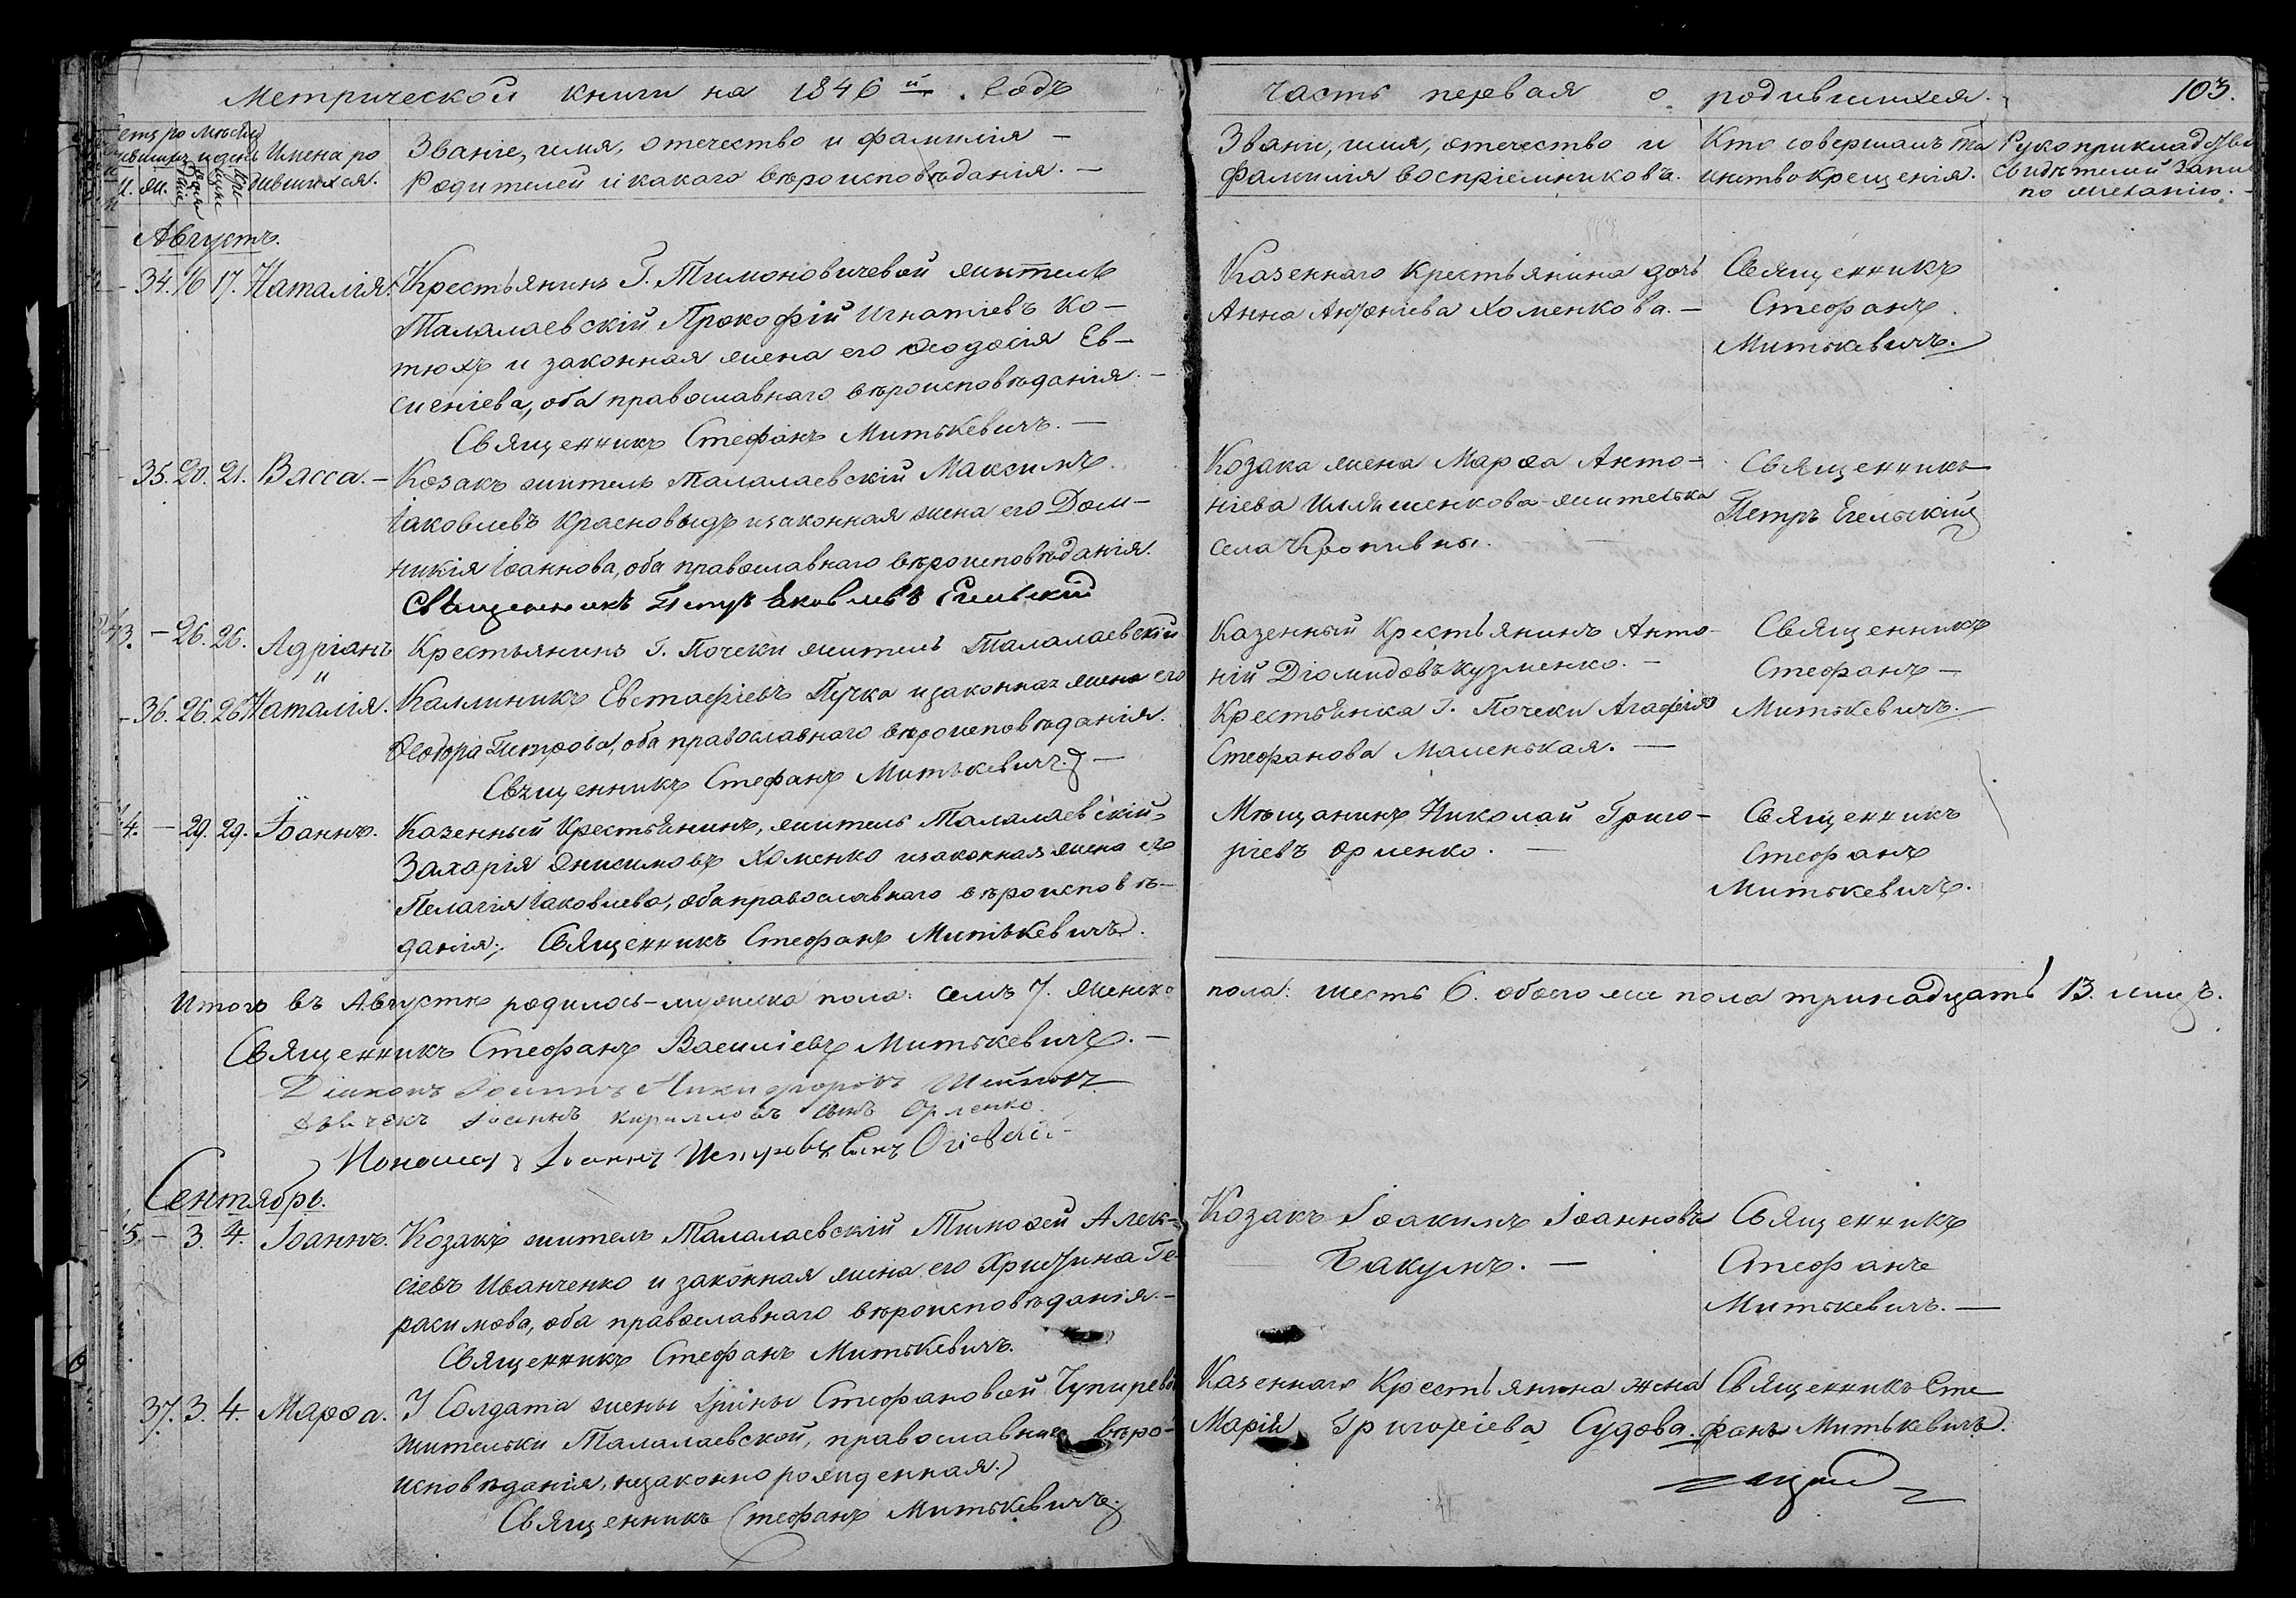 Метрической книги на 1846й. Годъ
Имена ро
дившихся.
Званіе, имя, отечество и фамилія –
Родителей и какого вѣроисповѣданія. –
Августъ.
34. 16 17. Наталія. Крестьянинъ Г. Тимоновичевой житель
Талалаевскій Прокофій Игнатіевъ Ко–
тюхъ и законная жена его Ѳеодосія Ев–
сиеніева, оба православнаго вѣроисповѣданія. –
Священникъ Стефанъ Митькевичъ. –
35. 20. 21. Васса. – Козакъ житель Талалаевскій Максимъ
Іаковлевъ Красновыдъ и законная жена его Дом–
никія Іоаннова, оба православнаго вѣроисповѣданія.
Священникъ Петръ Яковлевъ Егельскій
– 26. 26. Адріанъ Крестьянинъ Г. Почеки житель Талалаевскій
"
36. 26. 26 Наталія. Каллиникъ Евстафіевъ Пучка и законная жена его
Ѳеодора Петрова, оба православнаго вѣроисповѣданія.
Священникъ Стефанъ Митькевичъ. –
4. – 29. 29. Іоаннъ. Казенный Крестьянинъ, житель Талалаевскій
Захарія Онисимовъ Хоменко и законная жена его
Пелагія Іаковлева, оба православнаго вѣроисповѣ–
данія; Священникъ Стефанъ Митькевичъ.
Итого въ Августѣ родилось – мужеска пола: семъ 7. женска
Священникъ Стефанъ Василіевъ Митькевичъ. –
Діаконъ Іоаннъ Никифоровъ
Дьячекъ Іоаннъ Кирилловъ сынъ Орленко.
Пономарь Іоаннъ Петровъ Сынъ
Сентябрь.
15. – 3. 4. Іоаннъ. Козакъ житель Талалаевскій Тимофей Алек–
сіевъ Иванченко и законная жена его Христина Ге–
расимова, оба православнаго вѣроисповѣданія. –
Священникъ Стефанъ Митькевичъ.
37. 3. 4. Марѳа. У Солдата жены Ірины Стефановой Чупиревой
жительки Талалаевской, православнаго вѣро–
исповѣданія, незаконно рожденная.
Священникъ Стефанъ Митькевичъ.
часть первая о родившихся. 103.
Званіе, имя, отечество и
фамилія воспріемниковъ.
Кто совершалъ та
инство крещенія.
Рукоприкладство
свидѣтелей запи
по желанію. –
Казеннаго Крестьянина дочь
Анна Антоніева Хоменкова. –
Священникъ
Стефанъ
Митькевичъ.
Козака жена Марѳа Анто–
ніева Илляшенкова жителька
села Кропивны.
Священникъ
Петръ Егельскій
Казенный Крестьянинъ Анто–
ній Діомидовъ Кузменко. –
Крестьянка Г. Почеки Агафія
Стефанова Маленькая. –
Священникъ
Стефанъ –
Митькевичъ.
Мѣщанинъ Николай Григо–
ріевъ Орленко. –
Священникъ
Стефанъ
Митькевичъ.
пола: шесть 6. обоего же пола тринадцать 13. лицъ.
Козакъ Іоакимъ Іоанновъ
Бакумъ. –
Священникъ
Стефанъ
Митькевичъ. –
Казеннаго Крестьянина жена
Марія Григоріева Судова.
Священникъ Сте
фанъ Митькевичъ.